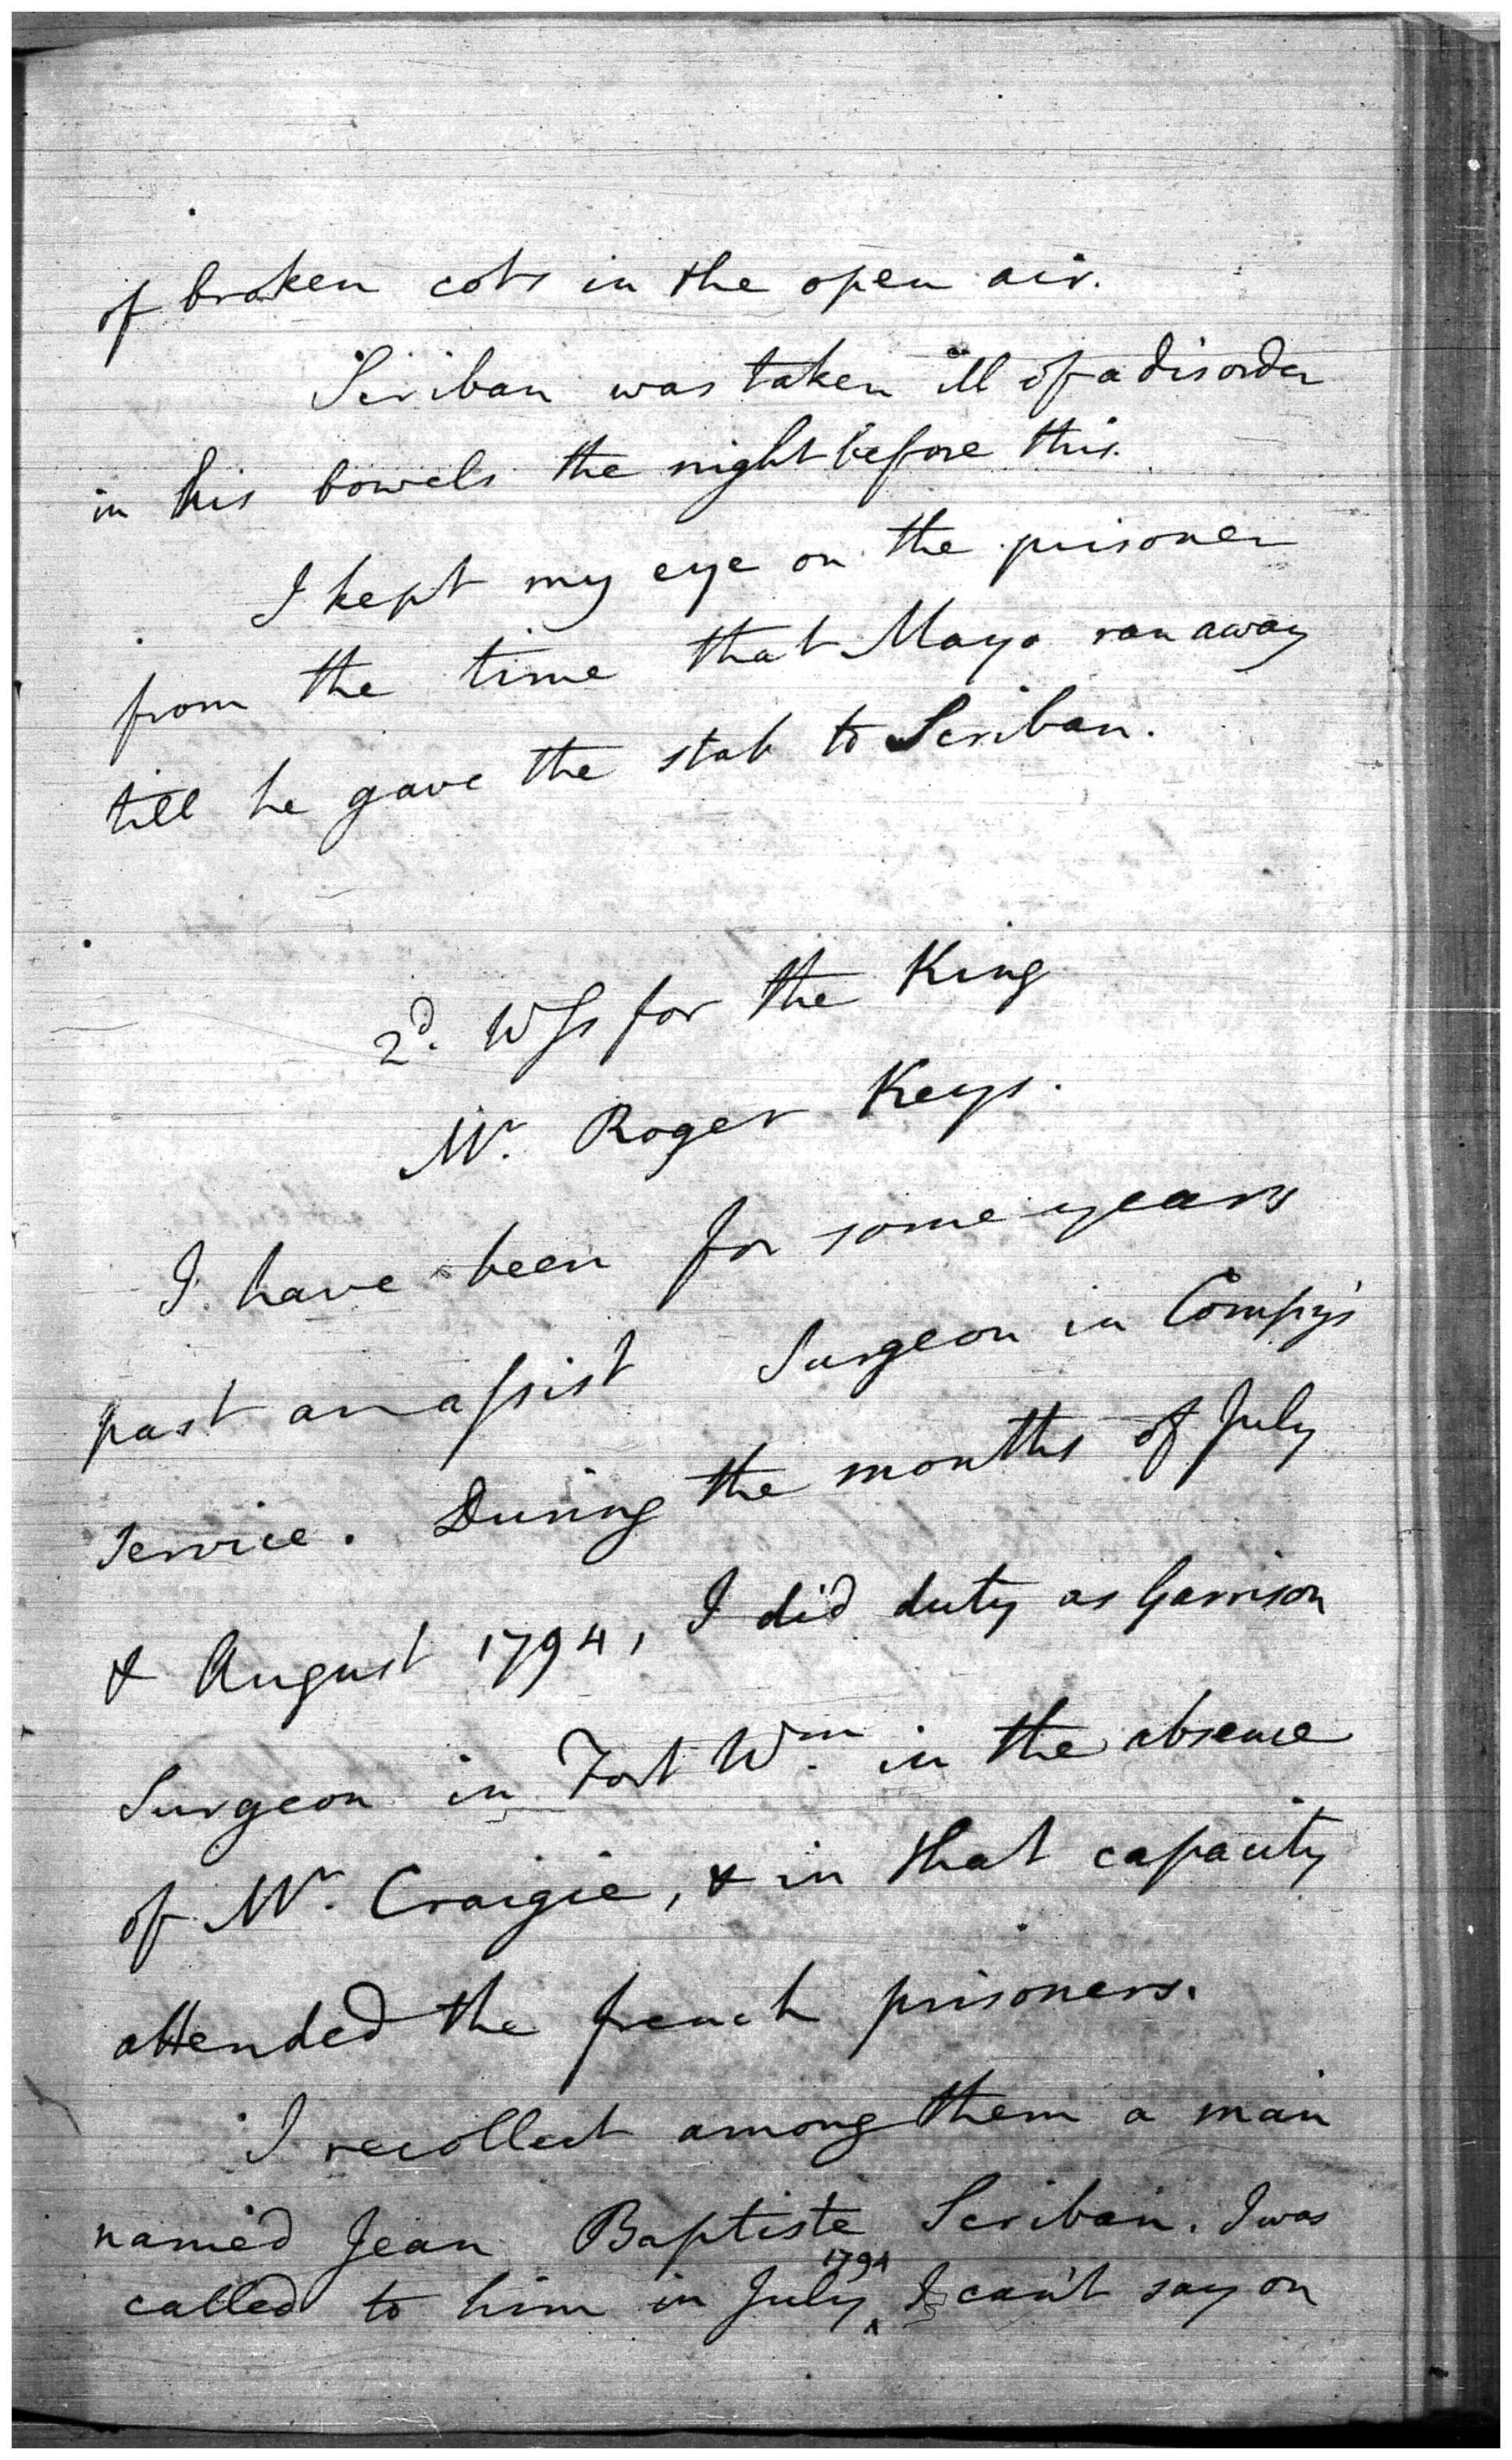 of broken cots in the open air.
Scriban was taken ill of a disorder
in his bowels the night before this.
I kept my eye on the prisoner
from the time that Mayo ran away
till he gave the stab to Scriban.
2d. Wss for the King
Mr. Roger Keys.
I have been for some years
past an assist Surgeon in Compy's
service. During the months of July
& August 1794, I did duty as Garrison
Surgeon in Fort Wm. in the absence
of Mr. Craigie, & in that capacity
attended the french prisoners.
I recollect among them a man
named Jean Baptiste Scriban. I was
called to him in July ^1794 I can't say on